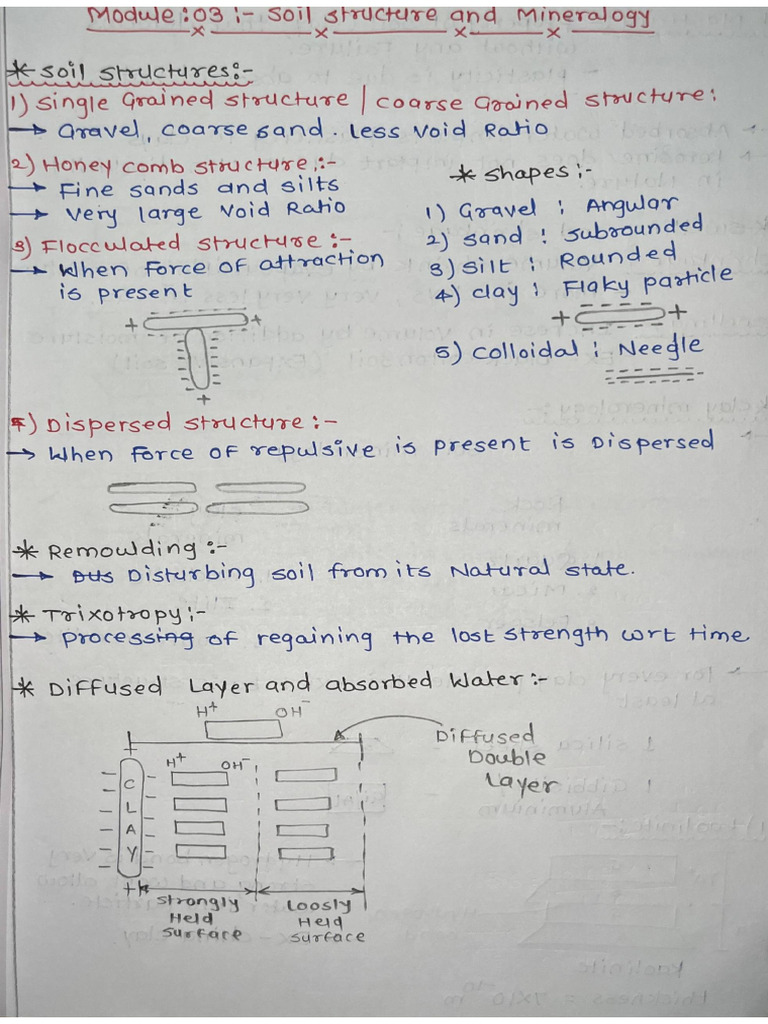 Module:03 :- Soil structure and Mineralogy
* Soil structures:-
1) Single Grained structure / coarse Grained structure:
→ Gravel, coarse sand. Less Void Ratio
2) Honey comb structure,:-
→ Fine sands and silts
→ Very large Void Ratio
3) Flocculated structure :-
→ When Force of attraction
is present
+ +
+
* Shapes :-
1) Gravel : Angular
2) Sand : Subrounded
3) Silt : Rounded
4) clay : Flaky particle
+ +
5) Colloidal : Needle
4) Dispersed structure :-
→ When Force of repulsive is present is Dispersed
* Remoulding :-
→ Disturbing soil from its Natural state.
* Trixotropy :-
→ processing of regaining the lost strength wrt time
* Diffused Layer and absorbed Water :-
H+ OH-
Diffused
Double
Layer
+
H+ OH-
CLAY
+
strongly
Held
surface
Loosly
Held
surface